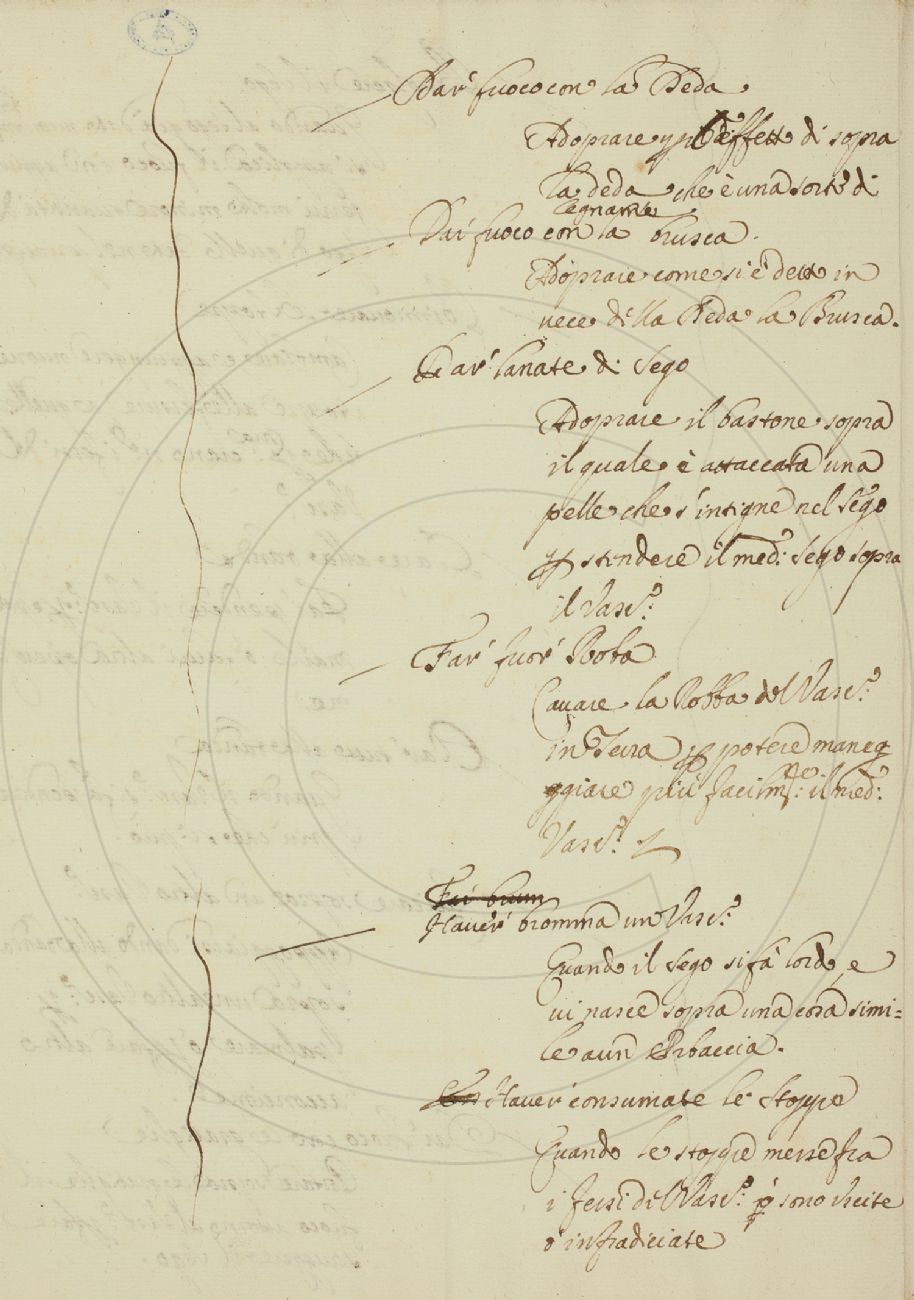 Dar' fuoco con la Deda.
Adoprare effetto di sopra
la deda che è una sorte di
legname
Dar fuoco con la brusca.
Adoprare come si è detto in
uece della Deda la Brusca.
Dar' lanate di Sego
Adoprare il bastone sopra
il quale è attaccata una
pelle che s'intigne nel Sego
stendere il med:° Sego sopra
il Vasc:°
Far' fuor' Robba
Cauare la Robba del Vasc:°
in Terra potere maneg
ggiare più facilm:te il med:°
Vasc:°
Far brum
Hauer' bromma un Vasc:°
Quando il Sego si fa lordo e
ui nasce sopra una cosa simi=
le a un Erbaccia.
Hauer' consumate le Stoppe
Quando le stoppe messe fra
i fersi del Vasc:° sono Uscite
ò infradiciate